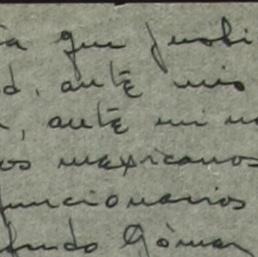 que
d. ante mis
, ante mi
os mexicanos
funcionarios
Gómez